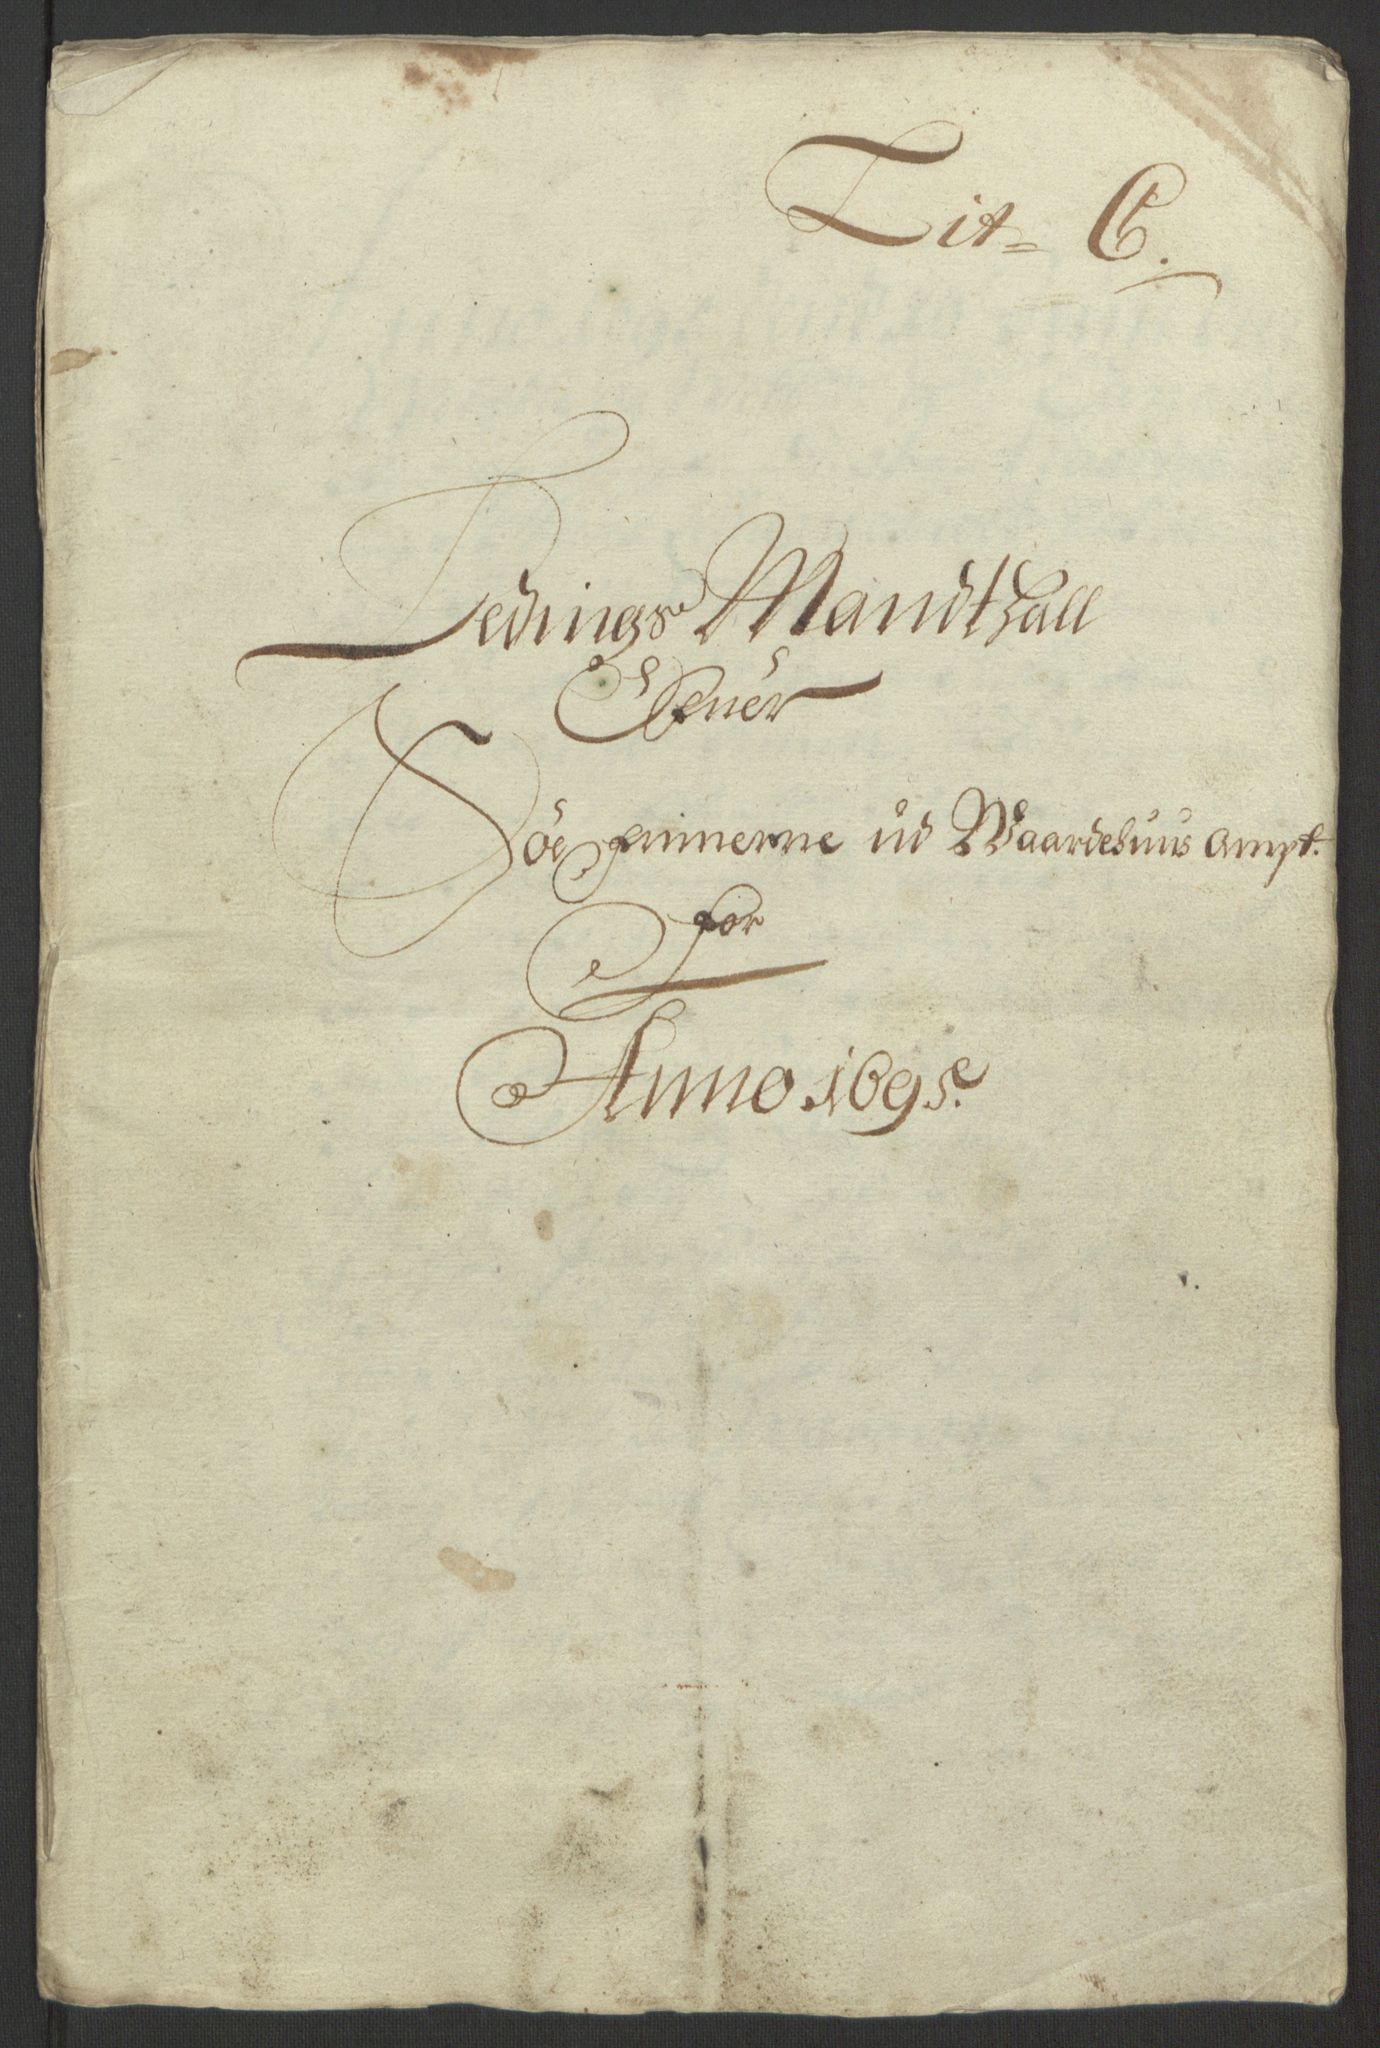 Lit= C.
Ledings Mandthall
Ofuer
Søe finnerne ud Waardehuus Ampt.
for
Anno 1695.